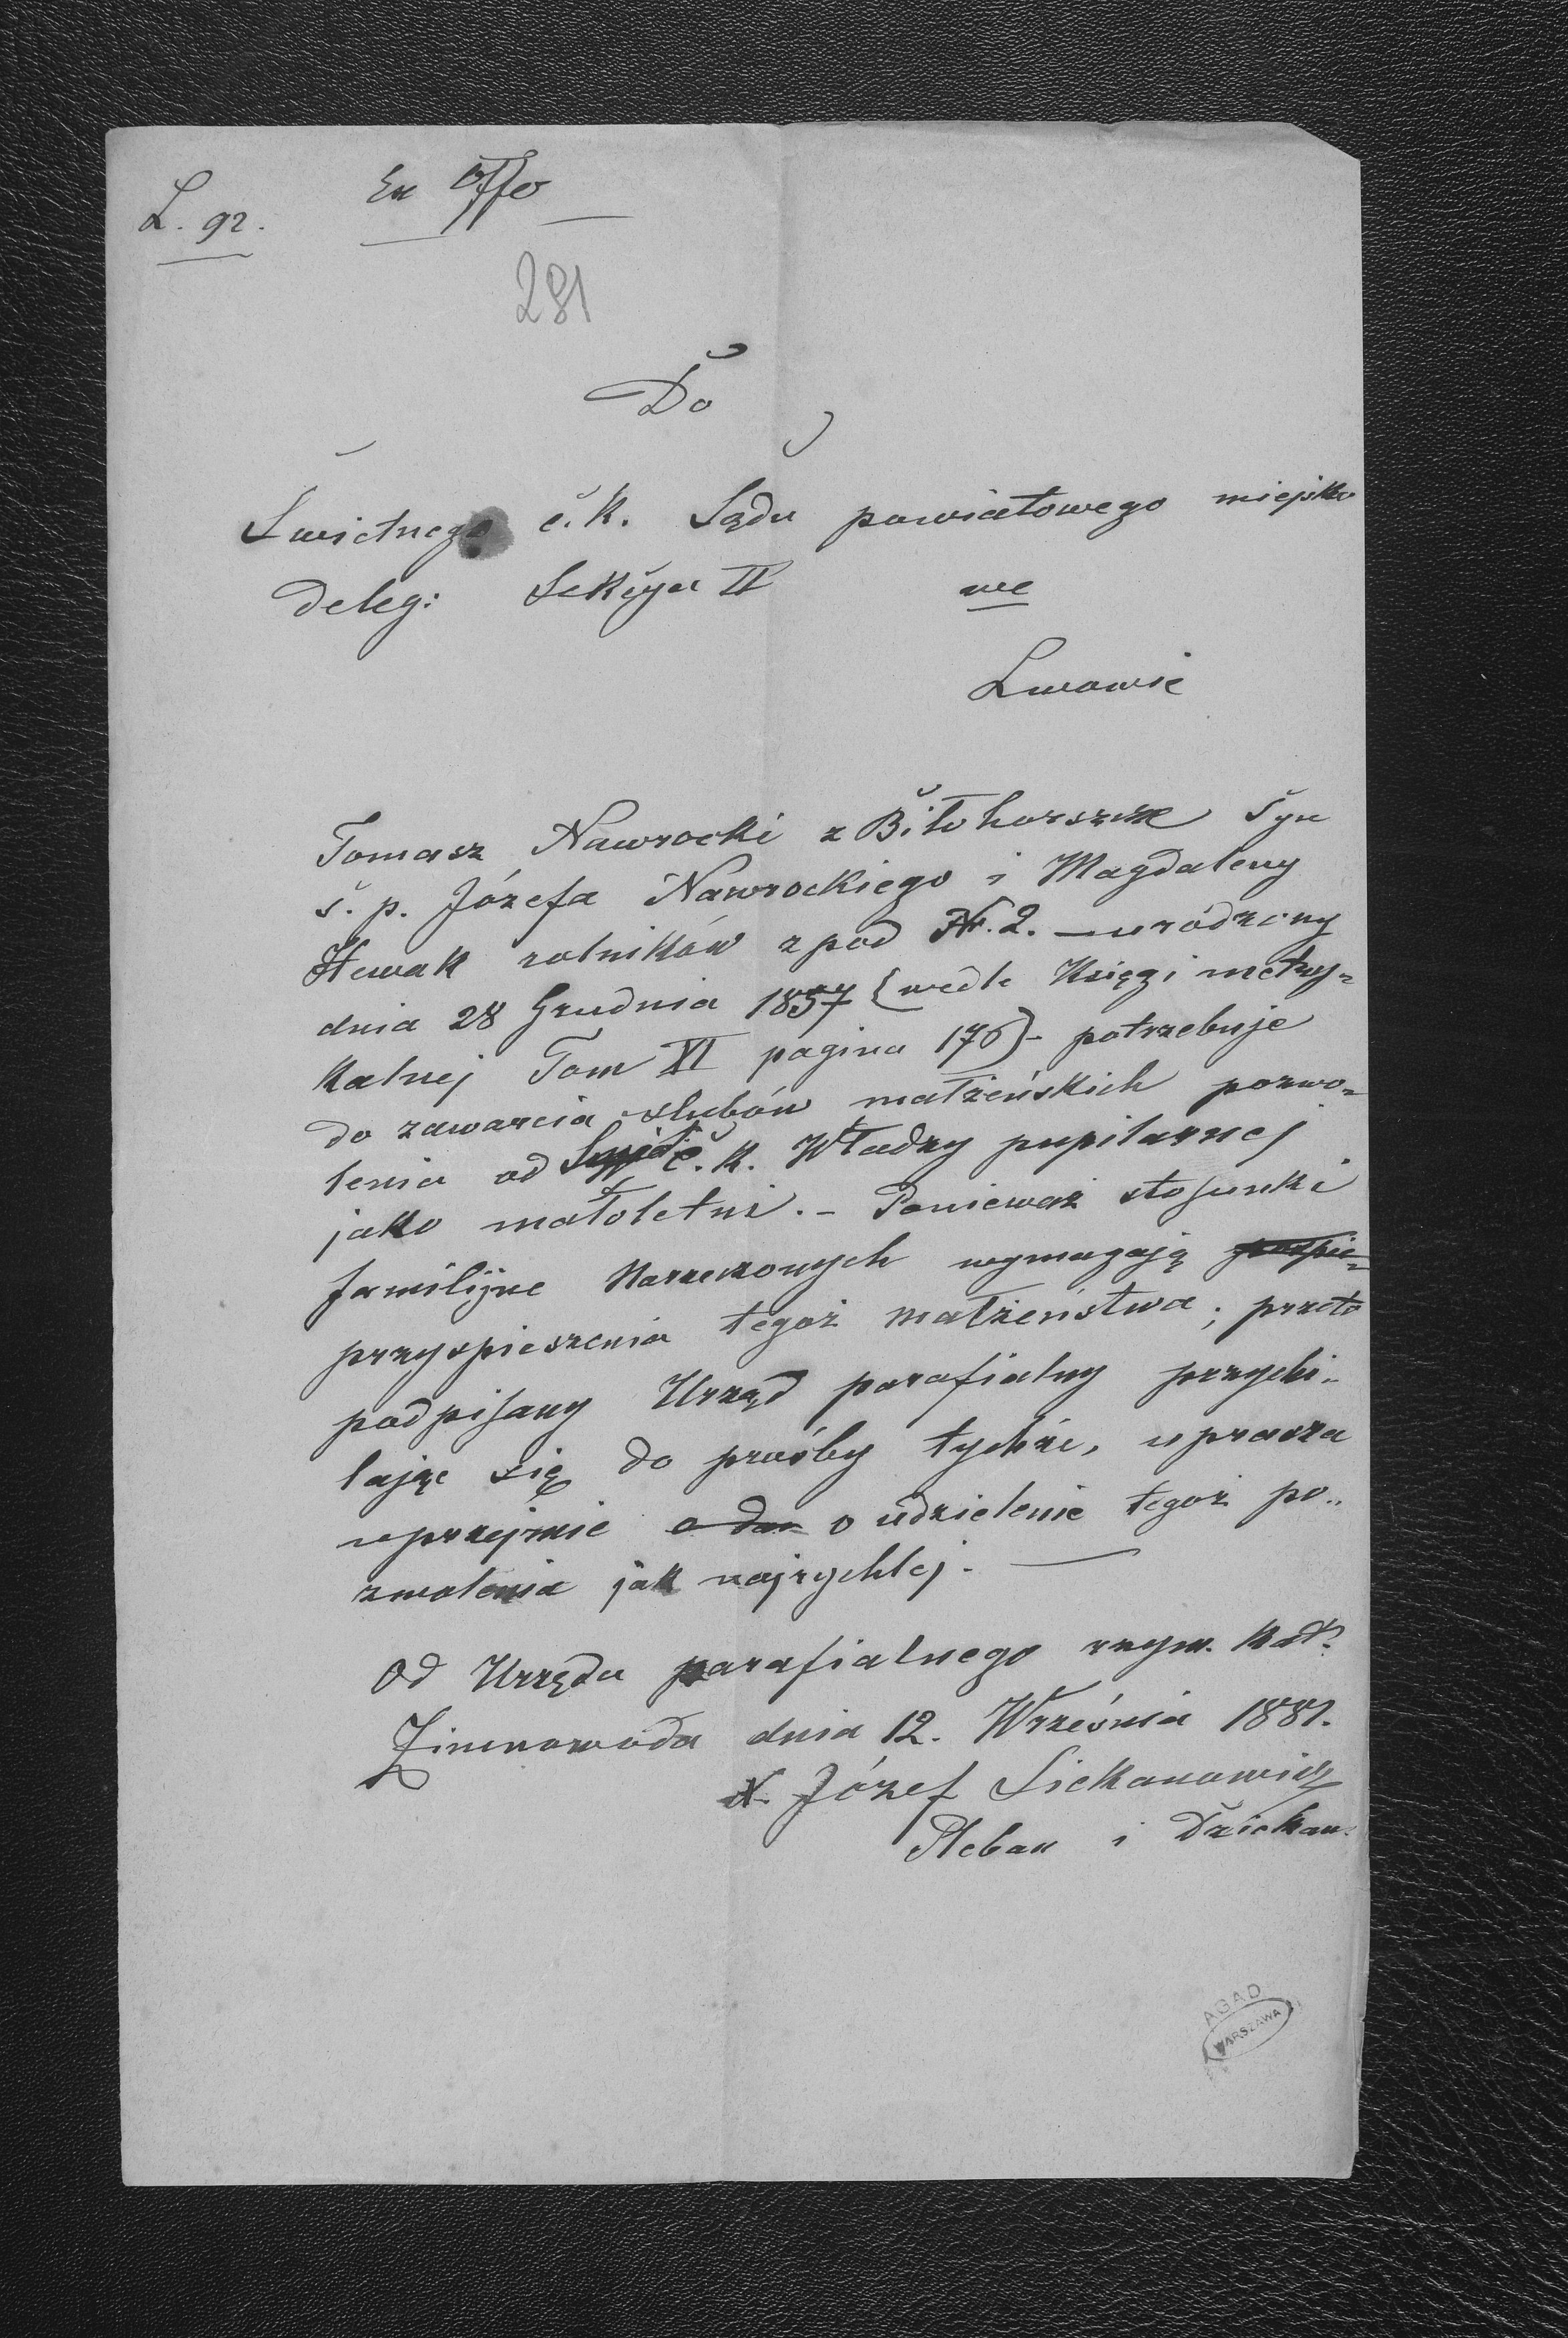 L. 92.
Ex offo
281
Do
Świetnego c. k. Sądu powiatowego miejsko
deleg: Sekcya II we
Lwowie
Tomasz Nawrocki z Biłohorszcze syn
ś. p. Józefa Nawrockiego i Magdaleny
Hewak rolników z pod N. 2. — urodzony
dnia 28 Grudnia 1857 (wedle Księgi metry=
kalnej Tom XI pagina 176) – potrzebuje
do zawarcia ślubów małżeńskich pozwo=
lenia od c. k. Władzy pupilarnej
jako małoletni. – Ponieważ stosunki
familijne Narzeczonych wymagają pospie=
przyspieszenia tegoż małżeństwa; przeto
podpisany Urząd parafialny przychi=
lając się do prośby tychże, uprasza
uprzejmie o udzielenie tegoż po=
zwolenia jak najrychlej. —
Od Urzędu parafialnego rzym. kat.
Zimnawoda dnia 12. Września 1881.
X. Józef Siekanowicz
Pleban i Dziekan.
AGAD
WARSZAWA